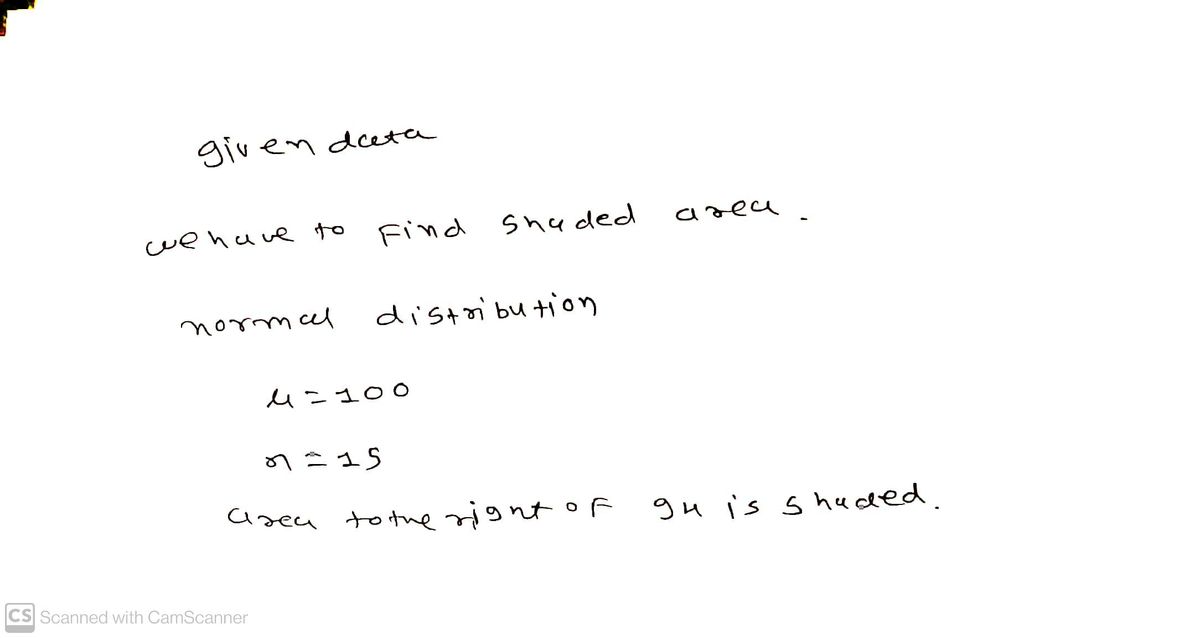 given data
we have to Find shaded area.
normal distribution
μ = 100
n = 15
area to the right of 94 is shaded.
CS Scanned with CamScanner